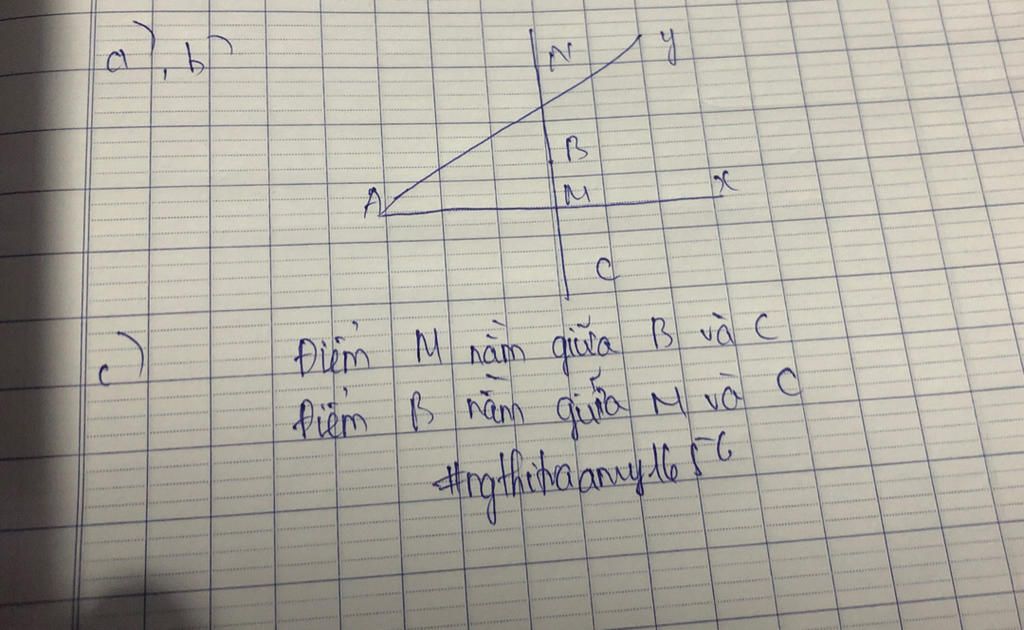 a), b)
N
y
B
A
M
x
C
c) Điểm M nằm giữa B và C
Điểm B nằm giữa M và C